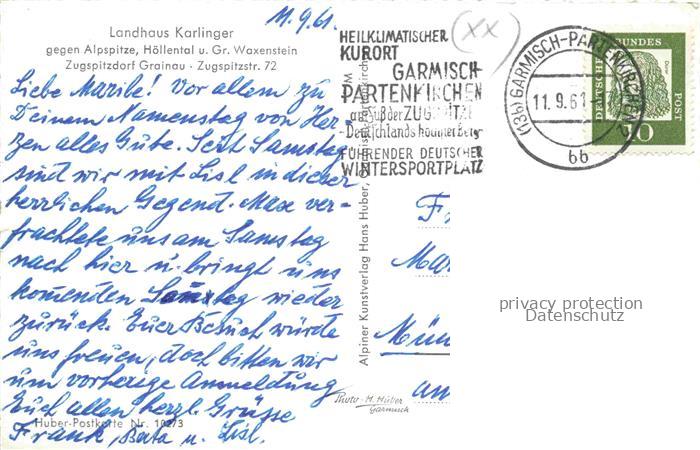 11.9.61.
Landhaus Karlinger
gegen Alpspitze, Höllental u. Gr. Waxenstein
Zugspitzdorf Grainau · Zugspitzstr. 72
Liebe Marile! Vor allem zu
Deinem Namenstag von Her-
zen alles Gute. Seit Samstag
sind wir mit Lisl in dieser
herrlichen Gegend. Max ver-
frachtete uns am Samstag
nach hier u. bringt uns
komenden Samstag wieder
zurück. Euer Besuch würde
uns freuen, doch bitten wir
um vorherige Anmeldung
Euch allen herzl. Grüsse
Huber-Postkarte Nr. 10273
Frank, Berta u. Lisl.
HEILKLIMATISCHER
KURORT
GARMISCH-
PARTENKIRCHEN
am Fuß der ZUGSPITZE
Deutschlands höchster Berg
FÜHRENDER DEUTSCHER
WINTERSPORTPLATZ
(xx)
(13b) GARMISCH-PARTENKIRCHEN
11.9.61
bb
DEUTSCHE BUNDESPOST
10
Alpiner Kunstverlag Hans Huber, Garmisch-Partenkirchen
Photo-H. Huber
Garmisch
Mün
an
privacy protection
Datenschutz